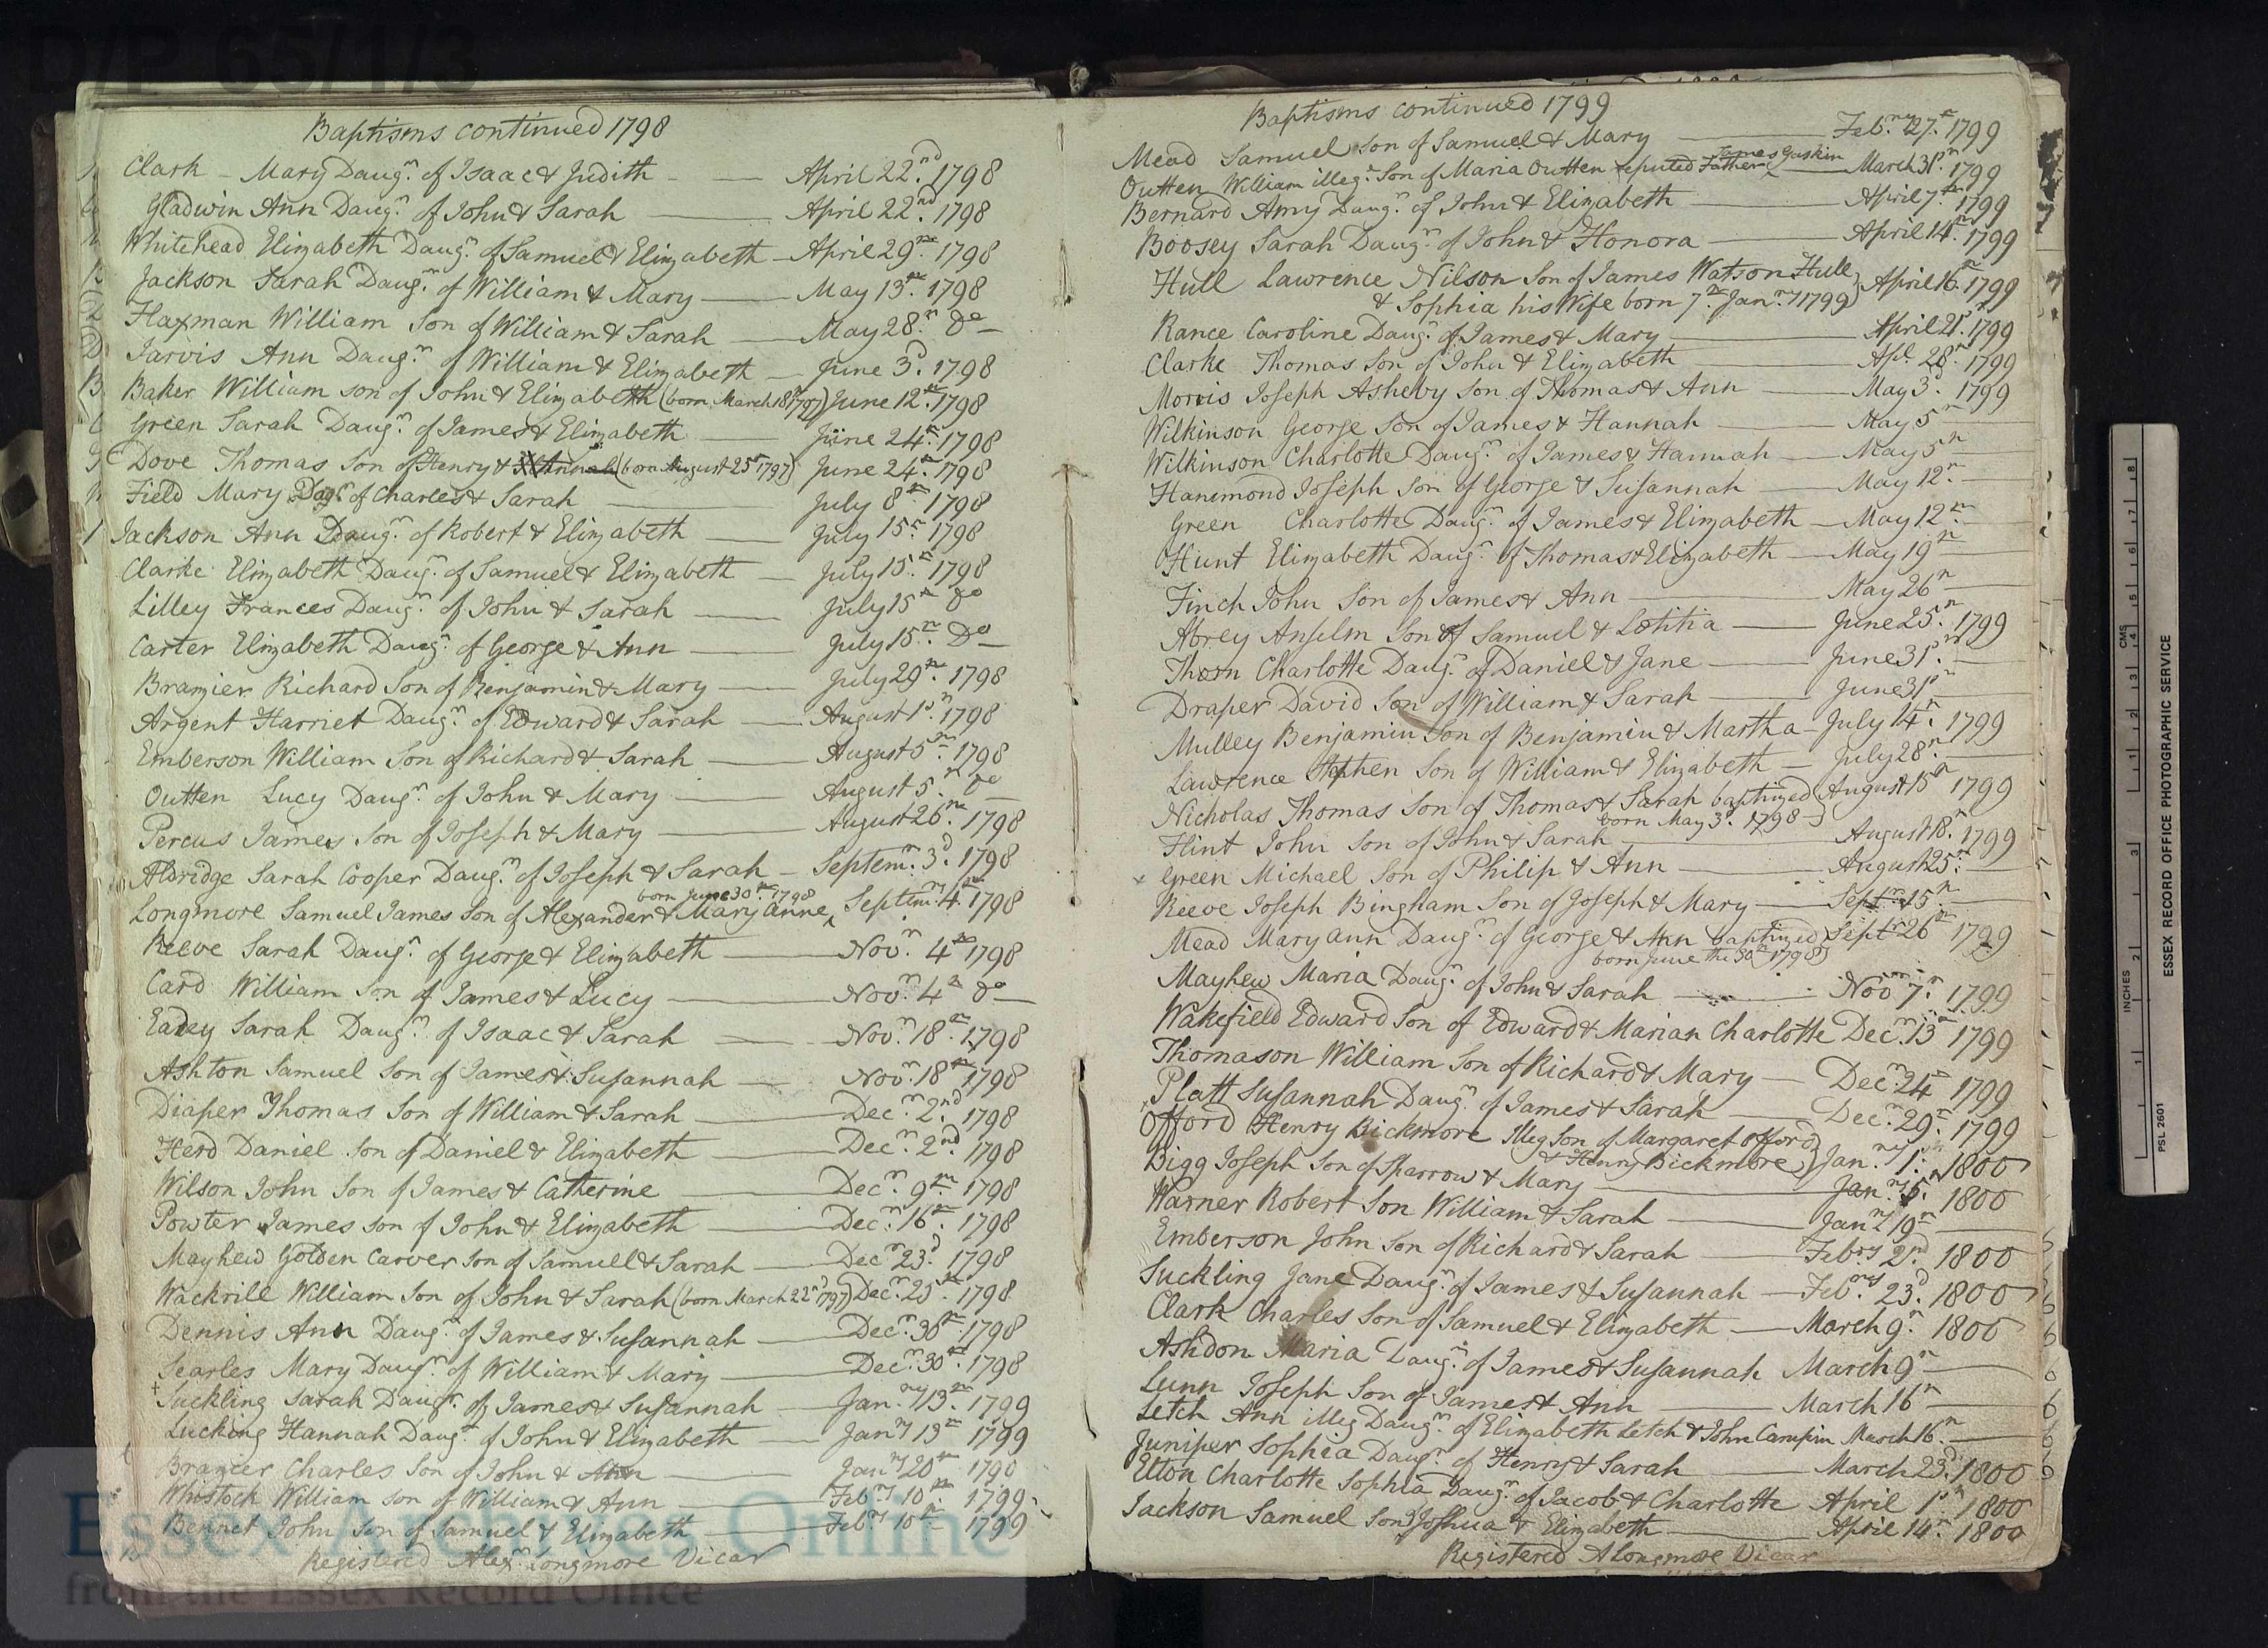 D/P 65/1/3
Baptisms continued 1798
Clark - Mary Daugr. of Isaac & Judith - April 22nd. 1798
Gladwin Ann Daugr. of John & Sarah April 22nd. 1798
Whitehead Elizabeth Daugr. of Samuel & Elizabeth April 29th. 1798
Jackson Sarah Daugr. of William & Mary May 13th. 1798
Flaxman William Son of William & Sarah May 28th. Do
Jarvis Ann Daugr. of William & Elizabeth June 3d. 1798
Baker William son of John & Elizabeth (born March 18th 1797) June 12th. 1798
Green Sarah Daugr. of James & Elizabeth June 24th. 1798
Dove Thomas Son of Henry & Hannah (born August 25th 1797) June 24th. 1798
Field Mary Dagr. of Charles & Sarah July 8th 1798
Jackson Ann Daugr. of Robert & Elizabeth July 15th. 1798
Clarke Elizabeth Daugr. of Samuel & Elizabeth July 15th. 1798
Lilley Frances Daugr. of John & Sarah July 15th Do
Carter Elizabeth Daugr. of George & Ann July 15th. Do
Brazier Richard Son of Benjamin & Mary July 29th. 1798
Argent Harriet Daugr. of Edward & Sarah August 1st. 1798
Emberson William Son of Richard & Sarah August 5th 1798
Outten Lucy Daugr. of John & Mary August 5th. Do
Percus James Son of Joseph & Mary August 26th. 1798
Aldridge Sarah Cooper Daugr. of Joseph & Sarah - Septemr. 3d. 1798
born June 30th 1798
Longmore Samuel James Son of Alexander & Mary Anne Septemr. 4th 1798
Reeve Sarah Daugr. of George & Elizabeth Novr. 4th 1798
Card William Son of James & Lucy Novr. 4th Do
Eadey Sarah Daugr. of Isaac & Sarah Novr. 18th. 1798
Ashton Samuel Son of James & Susannah Novr. 18th 1798
Diaper Thomas Son of William & Sarah Decr. 2nd. 1798
Herd Daniel Son of Daniel & Elizabeth Decr. 2nd. 1798
Wilson John Son of James & Catherine Decr. 9th 1798
Powter James son of John & Elizabeth Decr. 16th. 1798
Mayhew Golden Carver Son of Samuell & Sarah Decr. 23d. 1798
Wackrill William Son of John & Sarah (born March 22nd 1797) Decr. 25th. 1798
Dennis Ann Daugr. of James & Susannah Decr. 30th. 1798
Searles Mary Daugr. of William & Mary Decr. 30th. 1798
Suckling Sarah Daugr. of James & Susannah Janry 13th. 1799
Lucking Hannah Daugr. of John & Elizabeth Janry 13th 1799
Brazier Charles Son of John & Ann Janry 20th
Whistock William Son of William & Ann Febry 10th 1799
Bennet John Son of Samuel & Elizabeth Febry 10th 1799
Registered Alexr. Longmore Vicar
Essex Archives Online
from the Essex Record Office
Baptisms continued 1799
Mead Samuel Son of Samuel & Mary Febry 27th. 1799
James Gaskin
Outten William illeg. Son of Maria Outten reputed Father March 31st 1799
Bernard Amy Daugr. of John & Elizabeth April 7th 1799
Boosey Sarah Daugr. of John & Honora April 14th. 1799
Hull Lawrence Nilson Son of James Watson Hull April 16th 1799
& Sophia his Wife born 7th Janry 1799
Rance Caroline Daugr. of James & Mary April 21st 1799
Clarke Thomas Son of John & Elizabeth Apl. 28th 1799
Morris Joseph Asheby Son of Thomas & Ann May 3d. 1799
Wilkinson George Son of James & Hannah May 5th
Wilkinson Charlotte Daugr. of James & Hannah May 5th
Hammond Joseph Son of George & Susannah May 12th.
Green Charlotte Daugr. of James & Elizabeth May 12th.
Hunt Elizabeth Daugr. of Thomas & Elizabeth May 19th
Finch John Son of James & Ann May 26th
Abrey Anselm Son of Samuel & Lœtitia June 25th. 1799
Thorn Charlotte Daugr. of Daniel & Jane June 31st.
Draper David Son of William & Sarah June 31st
Mulley Benjamin Son of Benjamin & Martha July 14th. 1799
Lawrence Stephen Son of William & Elizabeth July 28th
Nicholas Thomas Son of Thomas & Sarah baptized August 15th 1799
born May 3d. 1798
Flint John Son of John & Sarah August 18th. 1799
Green Michael Son of Philip & Ann August 25th.
Reeve Joseph Bingham Son of Joseph & Mary Septr. 15th
Mead Mary Ann Daugr. of George & Ann baptized Septr 26th 1799
born June the 30th 1798
Mayhew Maria Daugr. of John & Sarah Novr 7th. 1799
Wakefield Edward Son of Edward & Marian Charlotte Decr. 13th 1799
Thomason William Son of Richard & Mary Decr. 24th 1799
Platt Susannah Daugr. of James & Sarah Decr. 29th. 1799
Offord Henry Bickmore Illeg Son of Margaret Offord
& Henry Bickmore Janry 1st. 1800
Bigg Joseph Son of Sparrow & Mary Janry 5th 1800
Warner Robert Son William & Sarah Janry 19th
Emberson John Son of Richard & Sarah Febry 2nd 1800
Suckling Jane Daugr. of James & Susannah Febry 23d. 1800
Clark Charles Son of Samuel & Elizabeth March 9th. 1800
Ashdon Maria Daugr. of James & Susannah March 9th
Lunn Joseph Son of James & Ann March 16th
Letch Ann illeg Daugr. of Elizabeth Letch & John Campin March 16th.
Juniper Sophia Daugr. of Henry & Sarah March 23d. 1800
Elton Charlotte Sophia Daugr. of Jacob & Charlotte April 1st 1800
Jackson Samuel Son Joshua & Elizabeth April 14th. 1800
Registered A Longmore Vicar
CMS
INCHES
ESSEX RECORD OFFICE PHOTOGRAPHIC SERVICE
PSL 2601